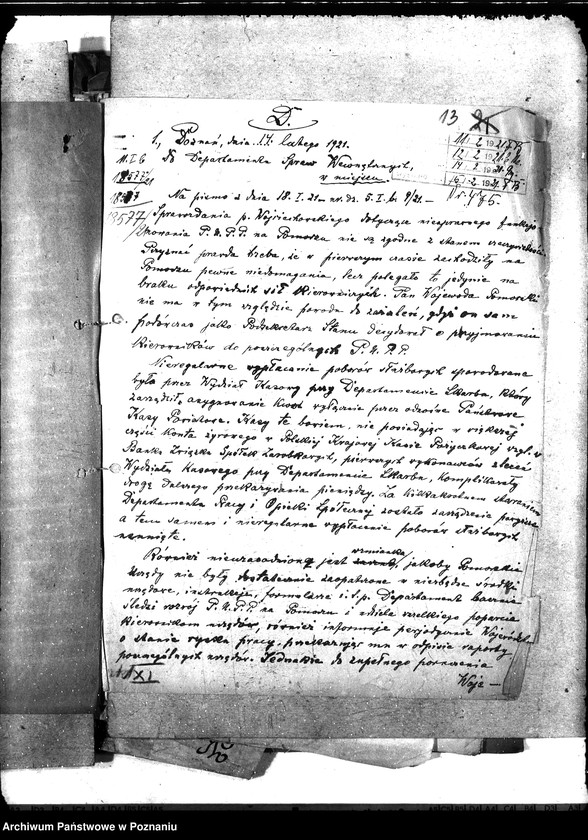 D.
13 21
1, Poznań, dnia 17. lutego 1921.
11 2 1921
12 2 1921
14 2 1921
16 2 1921
Do Departamentu Spraw Wewnętrznych,
w miejscu.
Na pismo z dnia 18. I. 21. nr. dz. 9/21.–
3577/
Sprawozdania p. Wojciechowskiego dotyczące niesprawnego funkcjo-
nowania P.U.P.P. na Pomorzu nie są zgodne z stanem rzeczywistości.
Przyznać prawda trzeba, że w pierwszym czasie zachodziły na
Pomorzu pewne niedomagania, lecz polegało to jedynie na
braku odpowiednich sił kierowniczych. Pan Wojewoda Pomorski
nie ma w tym względzie powodu do zażaleń, gdyż on sam
podówczas jako Podsekretarz Stanu decydował o przyjmowaniu
kierowników do poszczególnych P.U.P.P.
Nieregularne wypłacanie poborów służbowych spowodowane
było przez Wydział Kasowy przy Departamencie Skarbu, który
zarządził, asygnowanie kwot wyłącznie przez odnośne Państwowe
Kasy Powiatowe. Kasy te bowiem, nie posiadając w większej
części konta żyrowego w Polskiej Krajowej Kasie Pożyczkowej wzgl. w
Banku Związku Spółek Zarobkowych, pierwszych wykonawców zleceń
Wydziału Kasowego przy Departamencie Skarbu, komplikowały
drogę dalszego przekazywania pieniędzy. Za kilkakrotnem staraniem
Departamentu Pracy i Opieki Społecznej zostało zarządzenie powyższe
a tem samem i nieregularne wypłacanie poborów służbowych
usunięte.
Również nieuzasadnioną jest wzmianka, jakoby Pomorskie
Urzędy nie były dostatecznie zaopatrzone w niezbędne środki
urzędowe, instrukcje, formularze i.t.p. Departament bacznie
śledzi rozwój P.U.P.P. na Pomorzu i udziela wszelkiego poparcia
kierownikom urzędów, również informuje perjodycznie Województwo
o stanie rynku pracy, przekazując mu w odpisie raporty
poszczególnych urzędów. Jednakże do zupełnego porozumienia
Woje –
XI
Archiwum Państwowe w Poznaniu